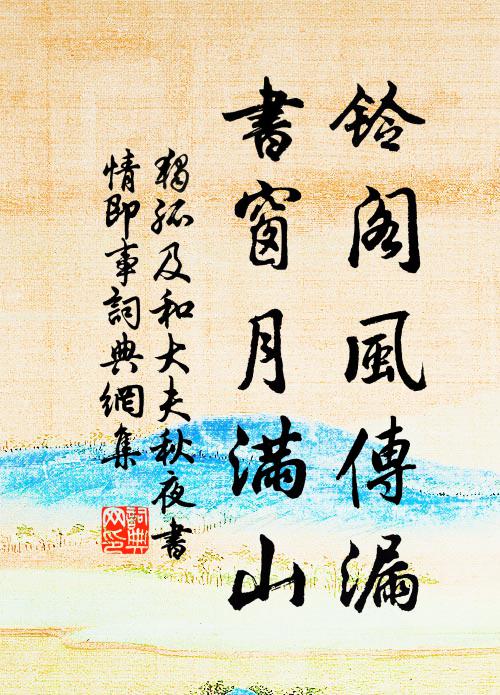 鈴閣風傳漏
書窗月滿山
獨孤及和大夫秋夜書
情即事詞典網集
詞典
网印